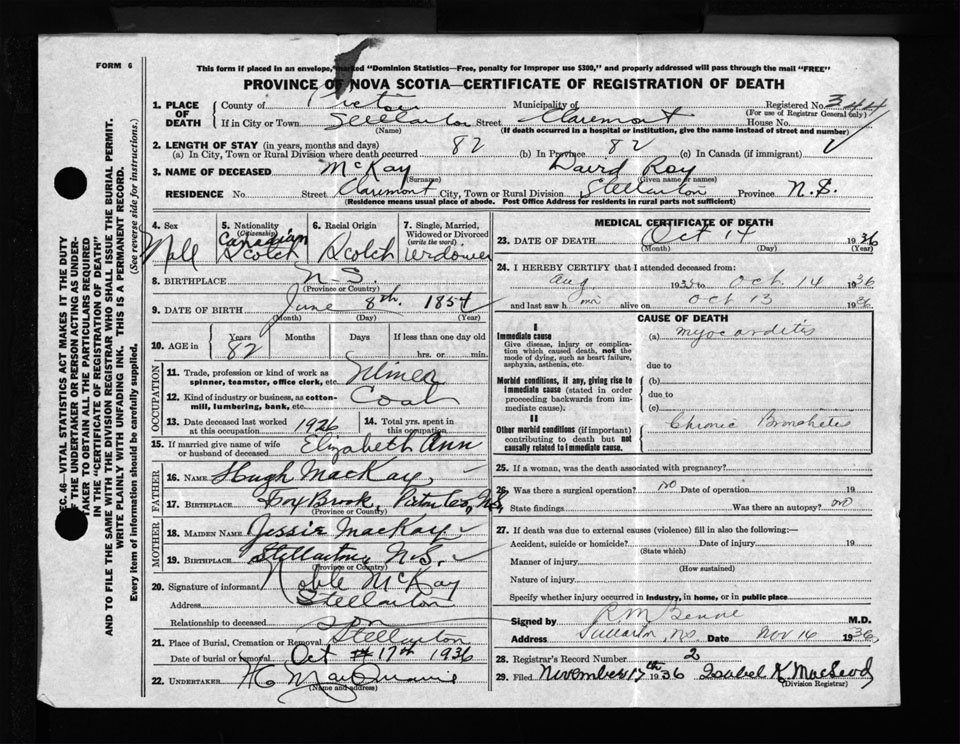 FORM 6
This form if placed in an envelope, marked "Dominion Statistics—Free, penalty for improper use $300," and properly addressed will pass through the mail "FREE"
PROVINCE OF NOVA SCOTIA—CERTIFICATE OF REGISTRATION OF DEATH
1. PLACE OF DEATH County of Pictou Municipality of Registered No. 344
(For use of Registrar General only)
If in City or Town Stellarton Street Claremont House No.
(Name) (If death occurred in a hospital or institution, give the name instead of street and number)
2. LENGTH OF STAY (in years, months and days)
(a) In City, Town or Rural Division where death occurred 82 (b) In Province 82 (c) In Canada (if immigrant)
3. NAME OF DECEASED McKay David Roy
(Surname) (Given name or names)
RESIDENCE No. Street Claremont City, Town or Rural Division Stellarton Province N.S.
(Residence means usual place of abode. Post Office Address for residents in rural parts not sufficient)
4. Sex 5. Nationality (Citizenship) 6. Racial Origin 7. Single, Married, Widowed or Divorced (write the word)
Male Canadian Scotch Scotch Widower
8. BIRTHPLACE N.S.
(Province or Country)
9. DATE OF BIRTH June 8th. 1854
(Month) (Day) (Year)
10. AGE in Years Months Days If less than one day old
82 hrs. or min.
OCCUPATION
11. Trade, profession or kind of work as spinner, teamster, office clerk, etc. Miner
12. Kind of industry or business, as cotton-mill, lumbering, bank, etc. Coal
13. Date deceased last worked at this occupation 1926 14. Total yrs. spent in this occupation
15. If married give name of wife or husband of deceased Elizabeth Ann
FATHER
16. NAME Hugh MacKay
17. BIRTHPLACE Fox Brook, Pictou Co, N.S.
(Province or Country)
MOTHER
18. MAIDEN NAME Jessie MacKay
19. BIRTHPLACE Stellarton, N.S.
(Province or Country)
20. Signature of informant Noble McKay
Address Stellarton
Relationship to deceased Son
21. Place of Burial, Cremation or Removal Stellarton
Date of burial or removal Oct 17th 1936
22. UNDERTAKER
(Name and address)
MEDICAL CERTIFICATE OF DEATH
23. DATE OF DEATH Oct 14 1936
(Month) (Day) (Year)
24. I HEREBY CERTIFY that I attended deceased from:
Aug 1935 to Oct 14 1936
and last saw h im alive on Oct 13 1936
CAUSE OF DEATH
I
Immediate cause
Give disease, injury or complication which caused death, not the mode of dying, such as heart failure, asphyxia, asthenia, etc.
(a) myocarditis
due to
Morbid conditions, if any, giving rise to immediate cause (stated in order proceeding backwards from immediate cause).
(b)
due to
(c)
II
Other morbid conditions (if important) contributing to death but not causally related to immediate cause.
Chronic Bronchitis
25. If a woman, was the death associated with pregnancy?
26. Was there a surgical operation? no Date of operation 19
State findings Was there an autopsy? no
27. If death was due to external causes (violence) fill in also the following:—
Accident, suicide or homicide? Date of injury 19
(State which)
Manner of injury
(How sustained)
Nature of injury
Specify whether injury occurred in industry, in home, or in public place
Signed by R M Benvie M.D.
Address Stellarton, N.S. Date Nov 16 1936
28. Registrar's Record Number 2
29. Filed November 17th 1936 Isabel K. MacLeod
(Division Registrar)
SEC. 46—VITAL STATISTICS ACT MAKES IT THE DUTY OF THE UNDERTAKER OR PERSON ACTING AS UNDERTAKER TO OBTAIN ALL THE PARTICULARS REQUIRED IN THE "CERTIFICATE OF REGISTRATION OF DEATH"
AND TO FILE THE SAME WITH THE DIVISION REGISTRAR WHO SHALL ISSUE THE BURIAL PERMIT.
WRITE PLAINLY WITH UNFADING INK. THIS IS A PERMANENT RECORD.
Every item of information should be carefully supplied. (See reverse side for instructions.)